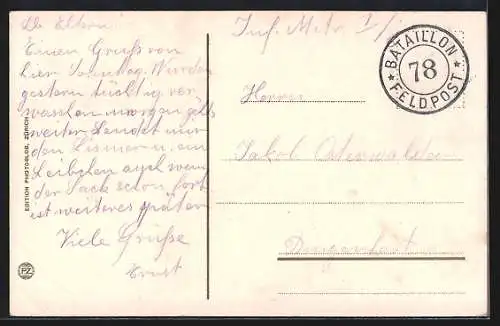 Lb. Eltern!
Einen Gruss von
hier Sonntag. Wurden
gestern tüchtig ver-
waschen morgen gehts
weiter. Sendet mir
den Lismer u. ein
Leibchen auch wenn
der Sack schon fort
ist weiteres später
Viele Grüsse
Ernst
EDITION PHOTOGLOB, ZÜRICH
PZ
Inf. Mitr. I/
BATAILLON
78
FELDPOST
Herrn
Jakob Osterwalder